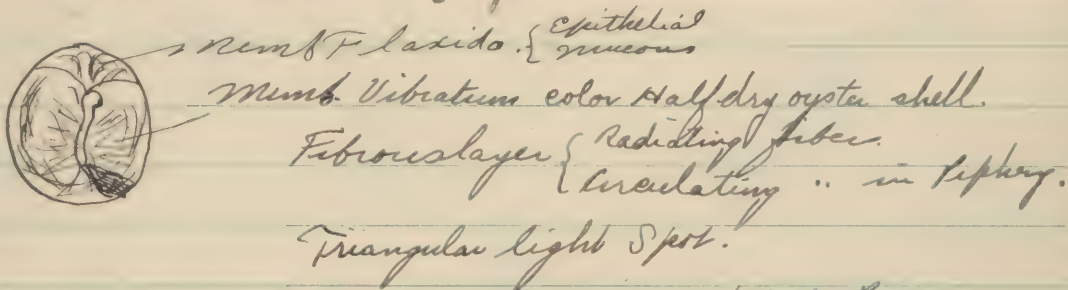 Memb Flaxida. { Epithelial
mucous
Memb. Vibratum color Half dry oyster shell.
Fibrous layer { Radiating fiber.
Circulating " in Piphery.
Triangular light Spot.